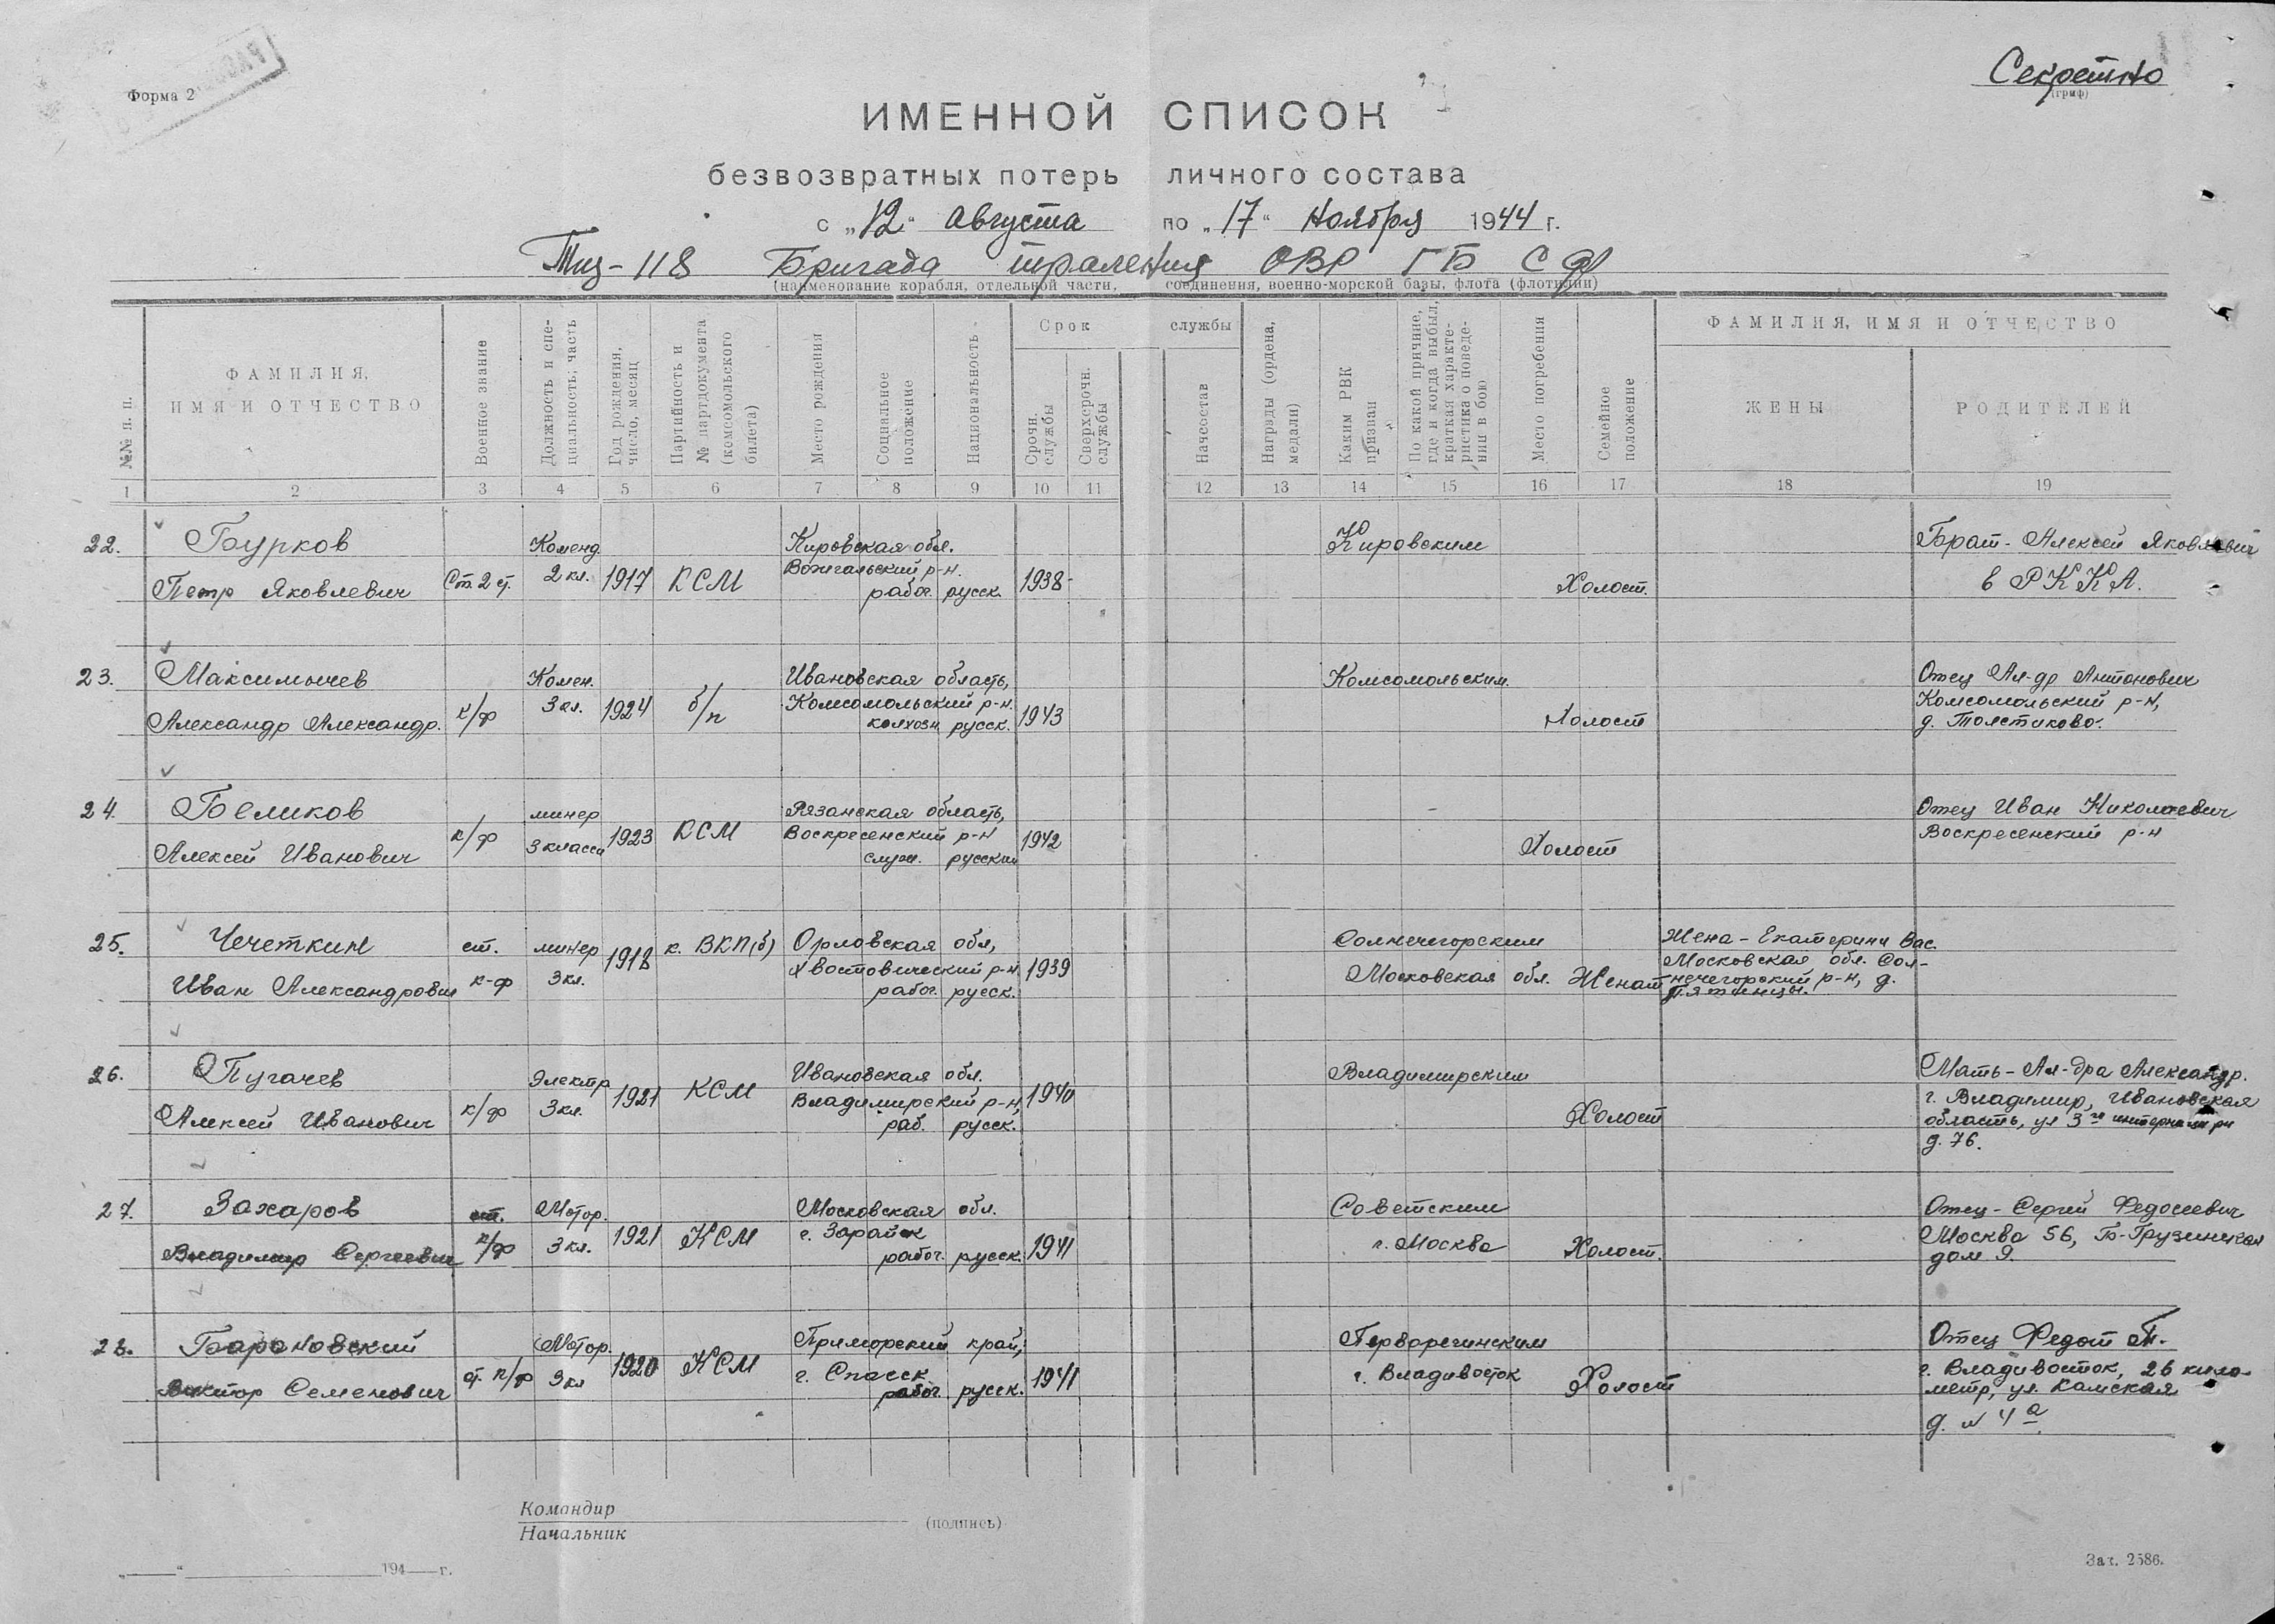 Форма 2
Секретно
(гриф)
ИМЕННОЙ СПИСОК
безвозвратных потерь личного состава
с „12“ Августа по „17“ Ноября 1944 г.
Тщ-118 Бригада траления ОВР ГБ СФ
(наименование корабля, отдельной части, соединения, военно-морской базы, флота (флотилии)
№№ п. п.
ФАМИЛИЯ,
ИМЯ И ОТЧЕСТВО
Военное звание
Должность и спе-
циальность; часть
Год рождения,
число, месяц
Партийность и
№ партдокумента
(комсомольского
билета)
Место рождения
Социальное
положение
Национальность
Срок службы
Срочн.
службы
Сверхсрочн.
службы
Начсостав
Награды (ордена,
медали)
Каким РВК
призван
По какой причине,
где и когда выбыл,
краткая характе-
ристика о поведе-
нии в бою
Место погребения
Семейное
положение
ФАМИЛИЯ, ИМЯ И ОТЧЕСТВО
ЖЕНЫ
РОДИТЕЛЕЙ
1 2 3 4 5 6 7 8 9 10 11 12 13 14 15 16 17 18 19
22. Бурков Коменд. Кировская обл. Кировским Брат - Алексей Яковлевич
Петр Яковлевич Ст. 2 ст. 2 кл. 1917 КСМ Вожгальский р-н. рабоч. русск. 1938 Холост. в РККА.
23. Максимычев Комен. Ивановская область, Комсомольским Отец Ал-др Антонович
Александр Александр. к/ф 3 кл. 1924 б/п Комсомольский р-н. колхозн. русск. 1943 Холост Комсомольский р-н,
д. Толстиково.
24. Беликов минер Рязанская область, Отец Иван Николаевич
Алексей Иванович к/ф 3 класса 1923 КСМ Воскресенский р-н служ. русский 1942 Холост Воскресенский р-н
25. Чечеткин ст. минер 1918 к. ВКП(б) Орловская обл, Солнечегорским Жена - Екатерина Вас.
Иван Александрович к-ф 3 кл. Хвостовический р-н. рабоч. русск. 1939 Московская обл. Женат Московская обл. Сол-
нечегорский р-н, д.
26. Пугачев электр. 1921 КСМ Ивановская обл. Владимирским Мать - Ал-дра Александр.
Алексей Иванович к/ф 3 кл. Владимирский р-н, раб. русск. 1940 Холост г. Владимир, Ивановская
область, ул 3го
д. 76.
27. Захаров ст. Мотор. Московская обл. Советским Отец - Сергей Федосеевич
Владимир Сергеевич к/ф 3 кл. 1921 КСМ г. Зарайск рабоч. русск. 1941 г. Москва Холост. Москва 56, Б-Грузинская
дом 9.
28. Барановский Мотор. Приморский край, Перворечинским Отец Федот Т.
Виктор Семенович ст. к/ф 3 кл 1920 КСМ г. Спасск рабоч. русск. 1941 г. Владивосток Холост г. Владивосток, 26 кило-
метр, ул. Камская
д. № 4 а
Командир
Начальник
(подпись)
„ “ 194 г.
Зак. 2586.